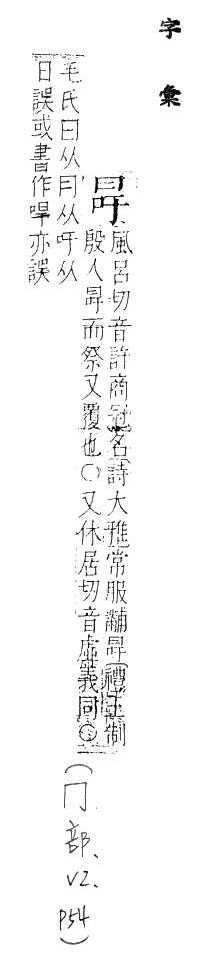 字彙
冔
風呂切音許商冠名詩大雅常服黼冔禮王制
殷人冔而祭又覆也○又休居切音虛義同○
毛氏曰从冃从吁从
日誤或書作㫄亦誤
(冂部、V2.P54)